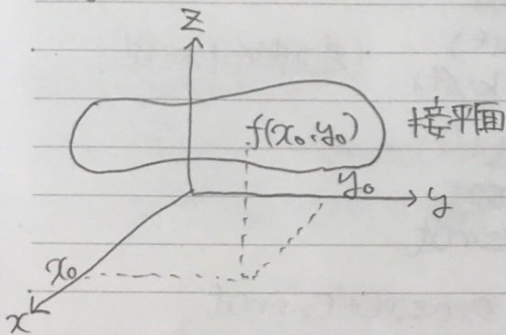 z
f(x₀,y₀)
接平面
y₀
y
x₀
x